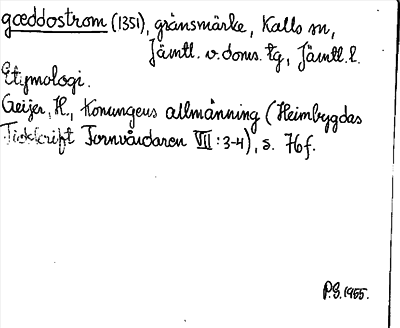 gœddostrom (1351), gränsmärke, Kalls sn,
Jämtl. v. doms. tg, Jämtl. l.
Etymologi.
Geijer, H., Konungens allmänning (Heimbygdas
Tidskrift Fornvårdaren VII: 3-4), s. 76f.
P.G. 1955.